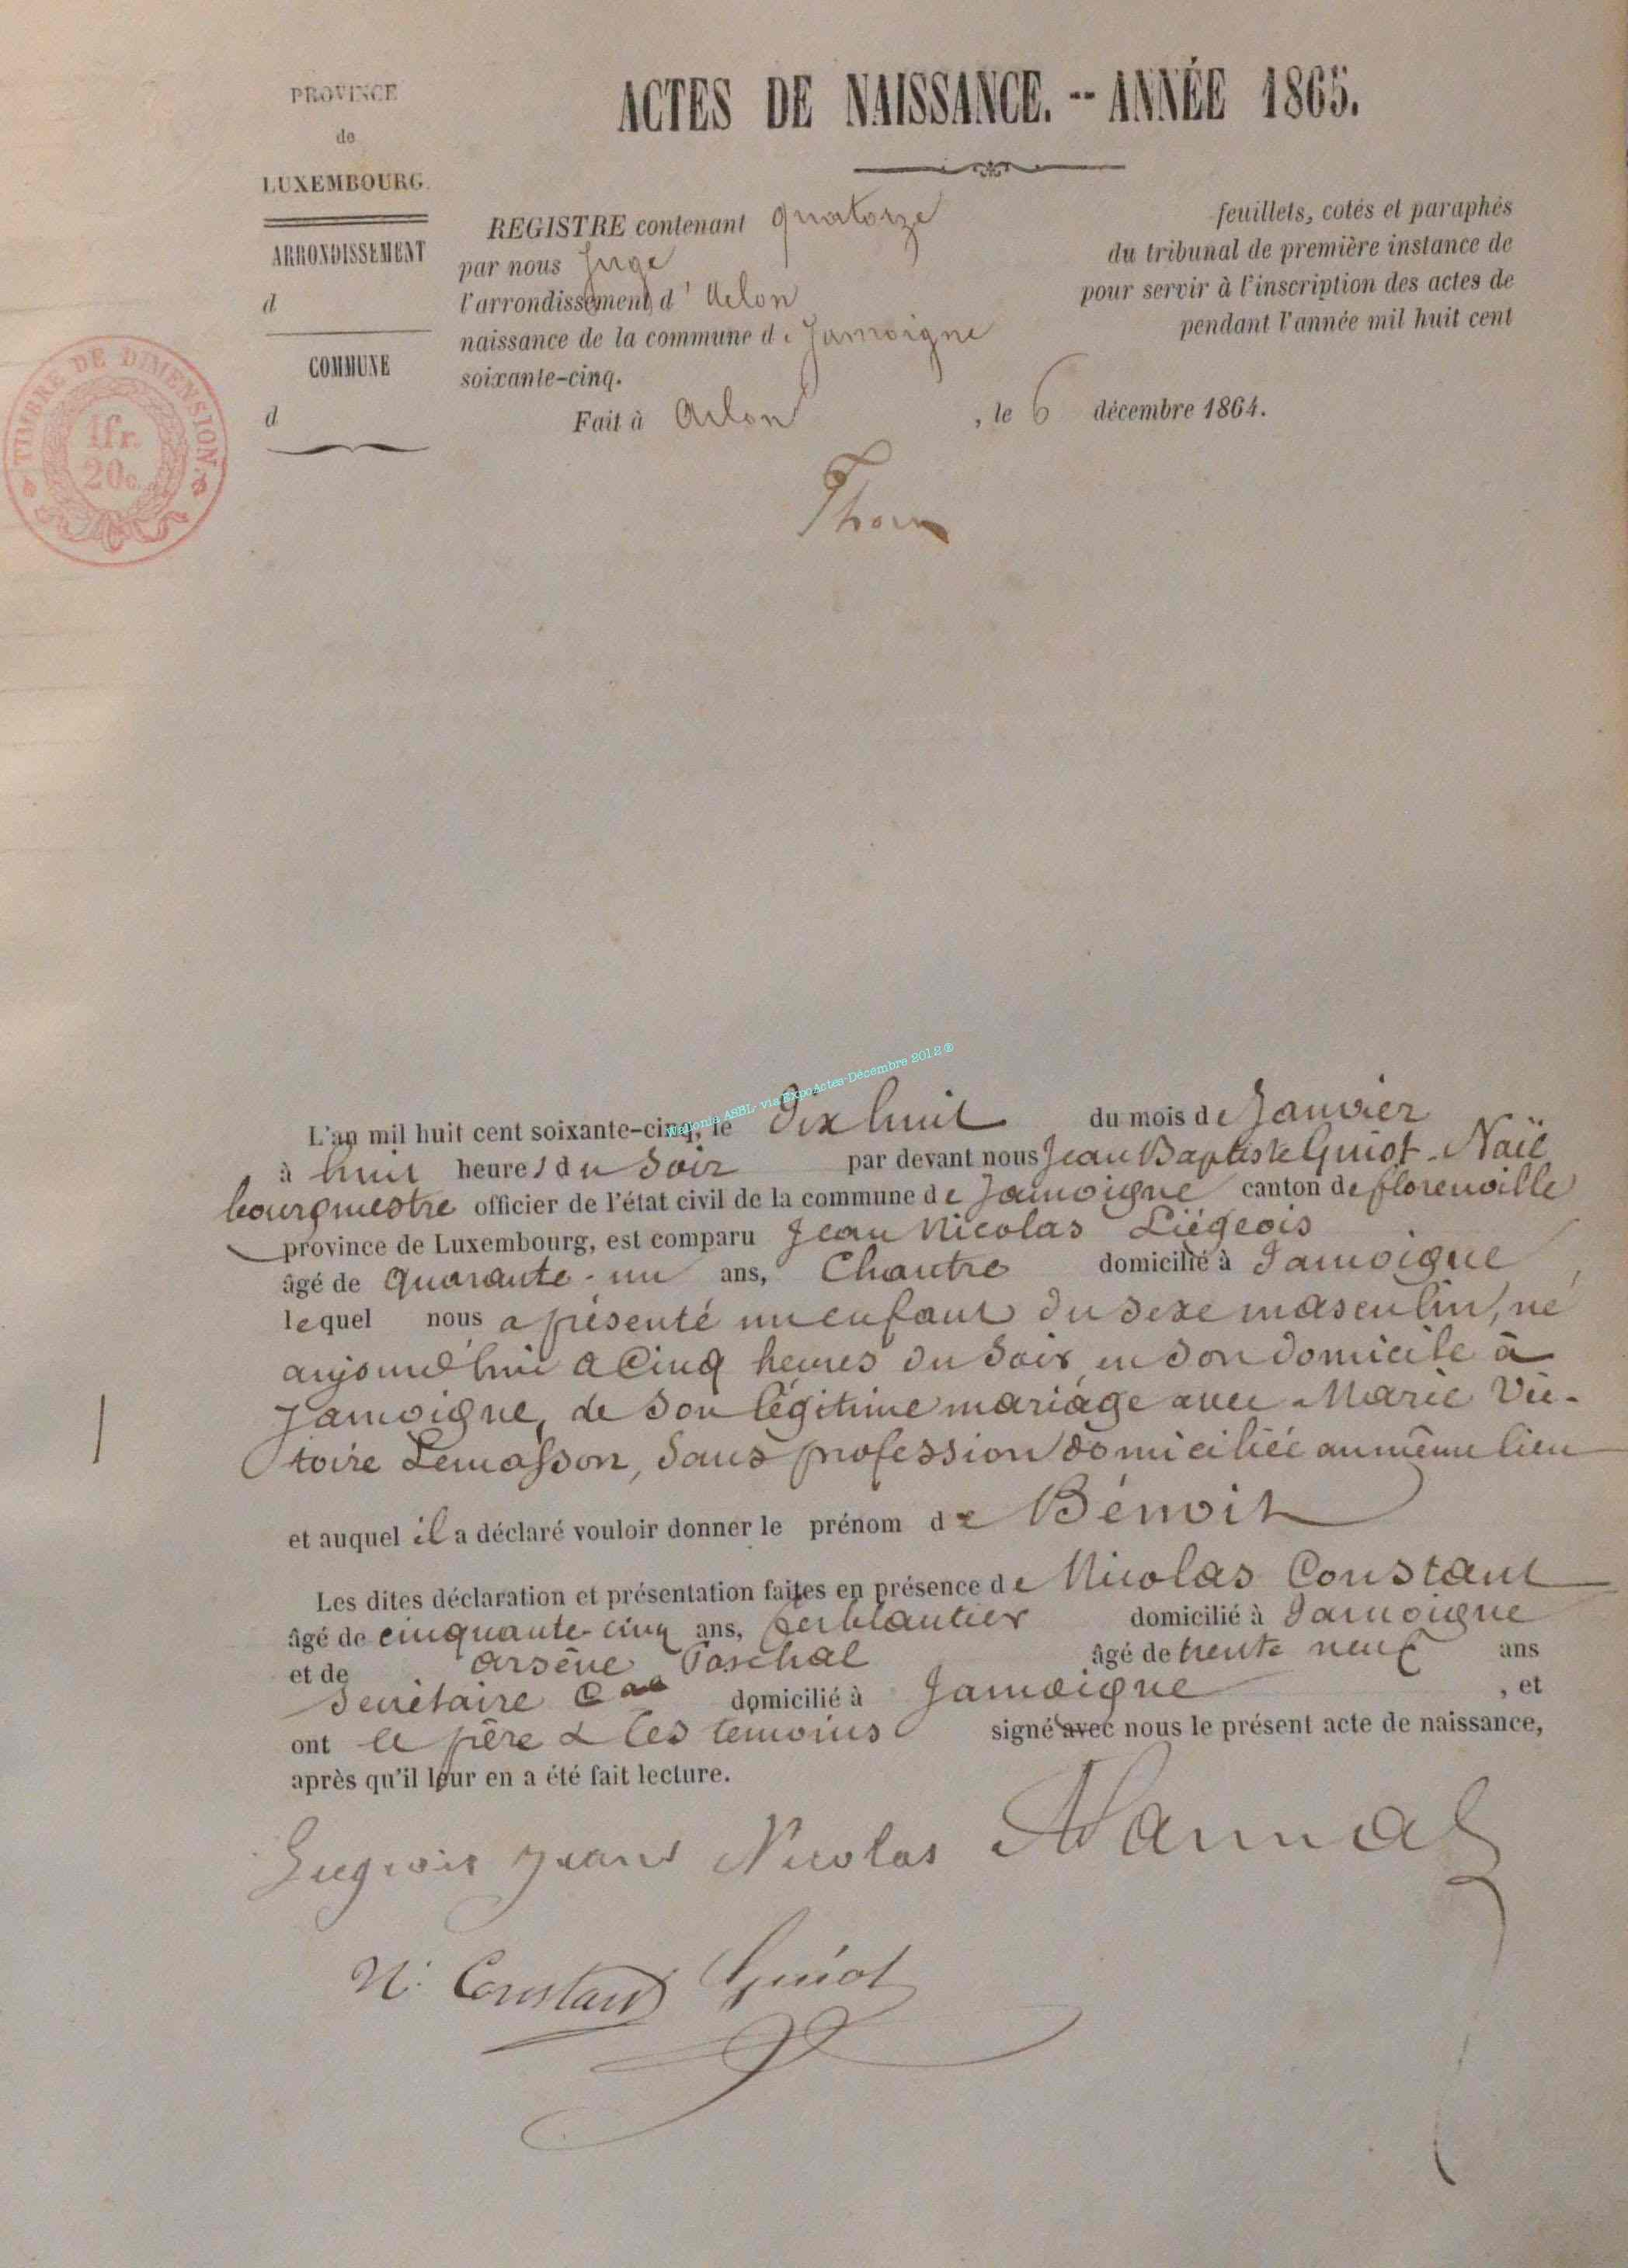 PROVINCE
de
LUXEMBOURG.
ARRONDISSEMENT
d
COMMUNE
d
TIMBRE DE DIMENSION.
1fr.
20c.
ACTES DE NAISSANCE. -- ANNÉE 1865.
REGISTRE contenant quatorze feuillets, cotés et paraphés
par nous Juge du tribunal de première instance de
l'arrondissement d' Arlon pour servir à l'inscription des actes de
naissance de la commune de Jamoigne pendant l'année mil huit cent
soixante-cinq.
Fait à Arlon, le 6 décembre 1864.
Wallonia ASBL- via ExpoActes-Décembre 2012®
L'an mil huit cent soixante-cinq, le Dix huit du mois de Janvier
à huit heures du Soir par devant nous Jean Baptiste Guiot-Naïl
bourgmestre officier de l'état civil de la commune de Jamoigne canton de florenville
province de Luxembourg, est comparu Jean Nicolas Liégeois
âgé de quarante-un ans, Chantre domicilié à Jamoigne
lequel nous a présenté un enfant du sexe masculin, né
aujourd'hui a Cinq heures du Soir en son domicile à
Jamoigne, de son légitime mariage avec Marie Vic-
toire Lemasson, Sans profession domiciliée au même lieu
et auquel il a déclaré vouloir donner le prénom de Bénoit
Les dites déclaration et présentation faites en présence de Nicolas Constant
âgé de cinquante-cinq ans, ferblantier domicilié à Jamoigne
et de Arsène Paschal âgé de trente neuf ans
Secrétaire Cal domicilié à Jamoigne, et
ont le père & les temoins signé avec nous le présent acte de naissance,
après qu'il leur en a été fait lecture.
Nicolas
N. Constant Guiot